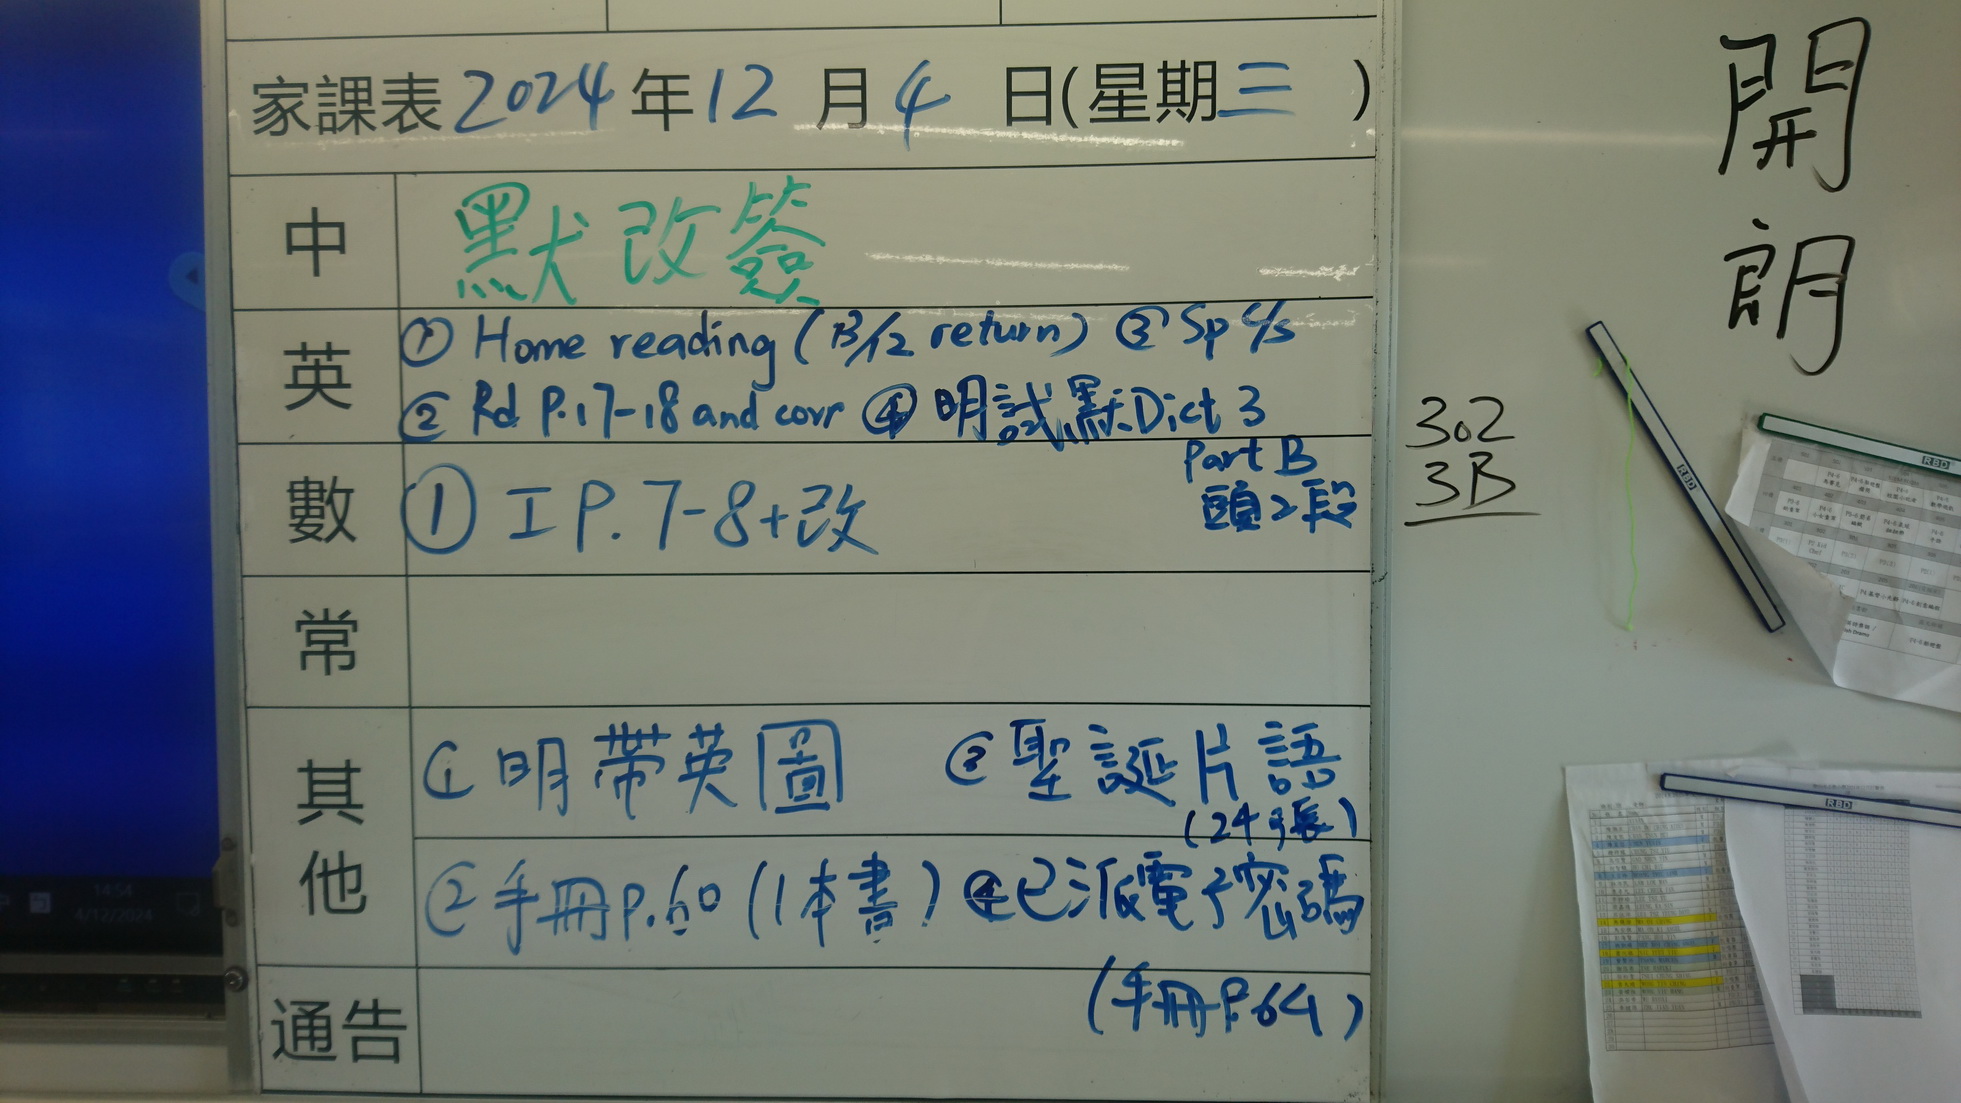 家課表 2024 年 12 月 4 日(星期三 )
中
默改簽
英
① Home reading (13/12 return) ③ Sp c/s
② Rd P.17-18 and corr ④ 明試默Dict 3
Part B
頭2段
數
① I P.7-8+改
常
其他
① 明帶英圖 ③ 聖誕片語
(24張)
② 手冊P.60 (1本書) ④已派電子密碼
(手冊P.64)
通告
開朗
302
3B
RBD
RBD
RBD
14:54
4/12/2024